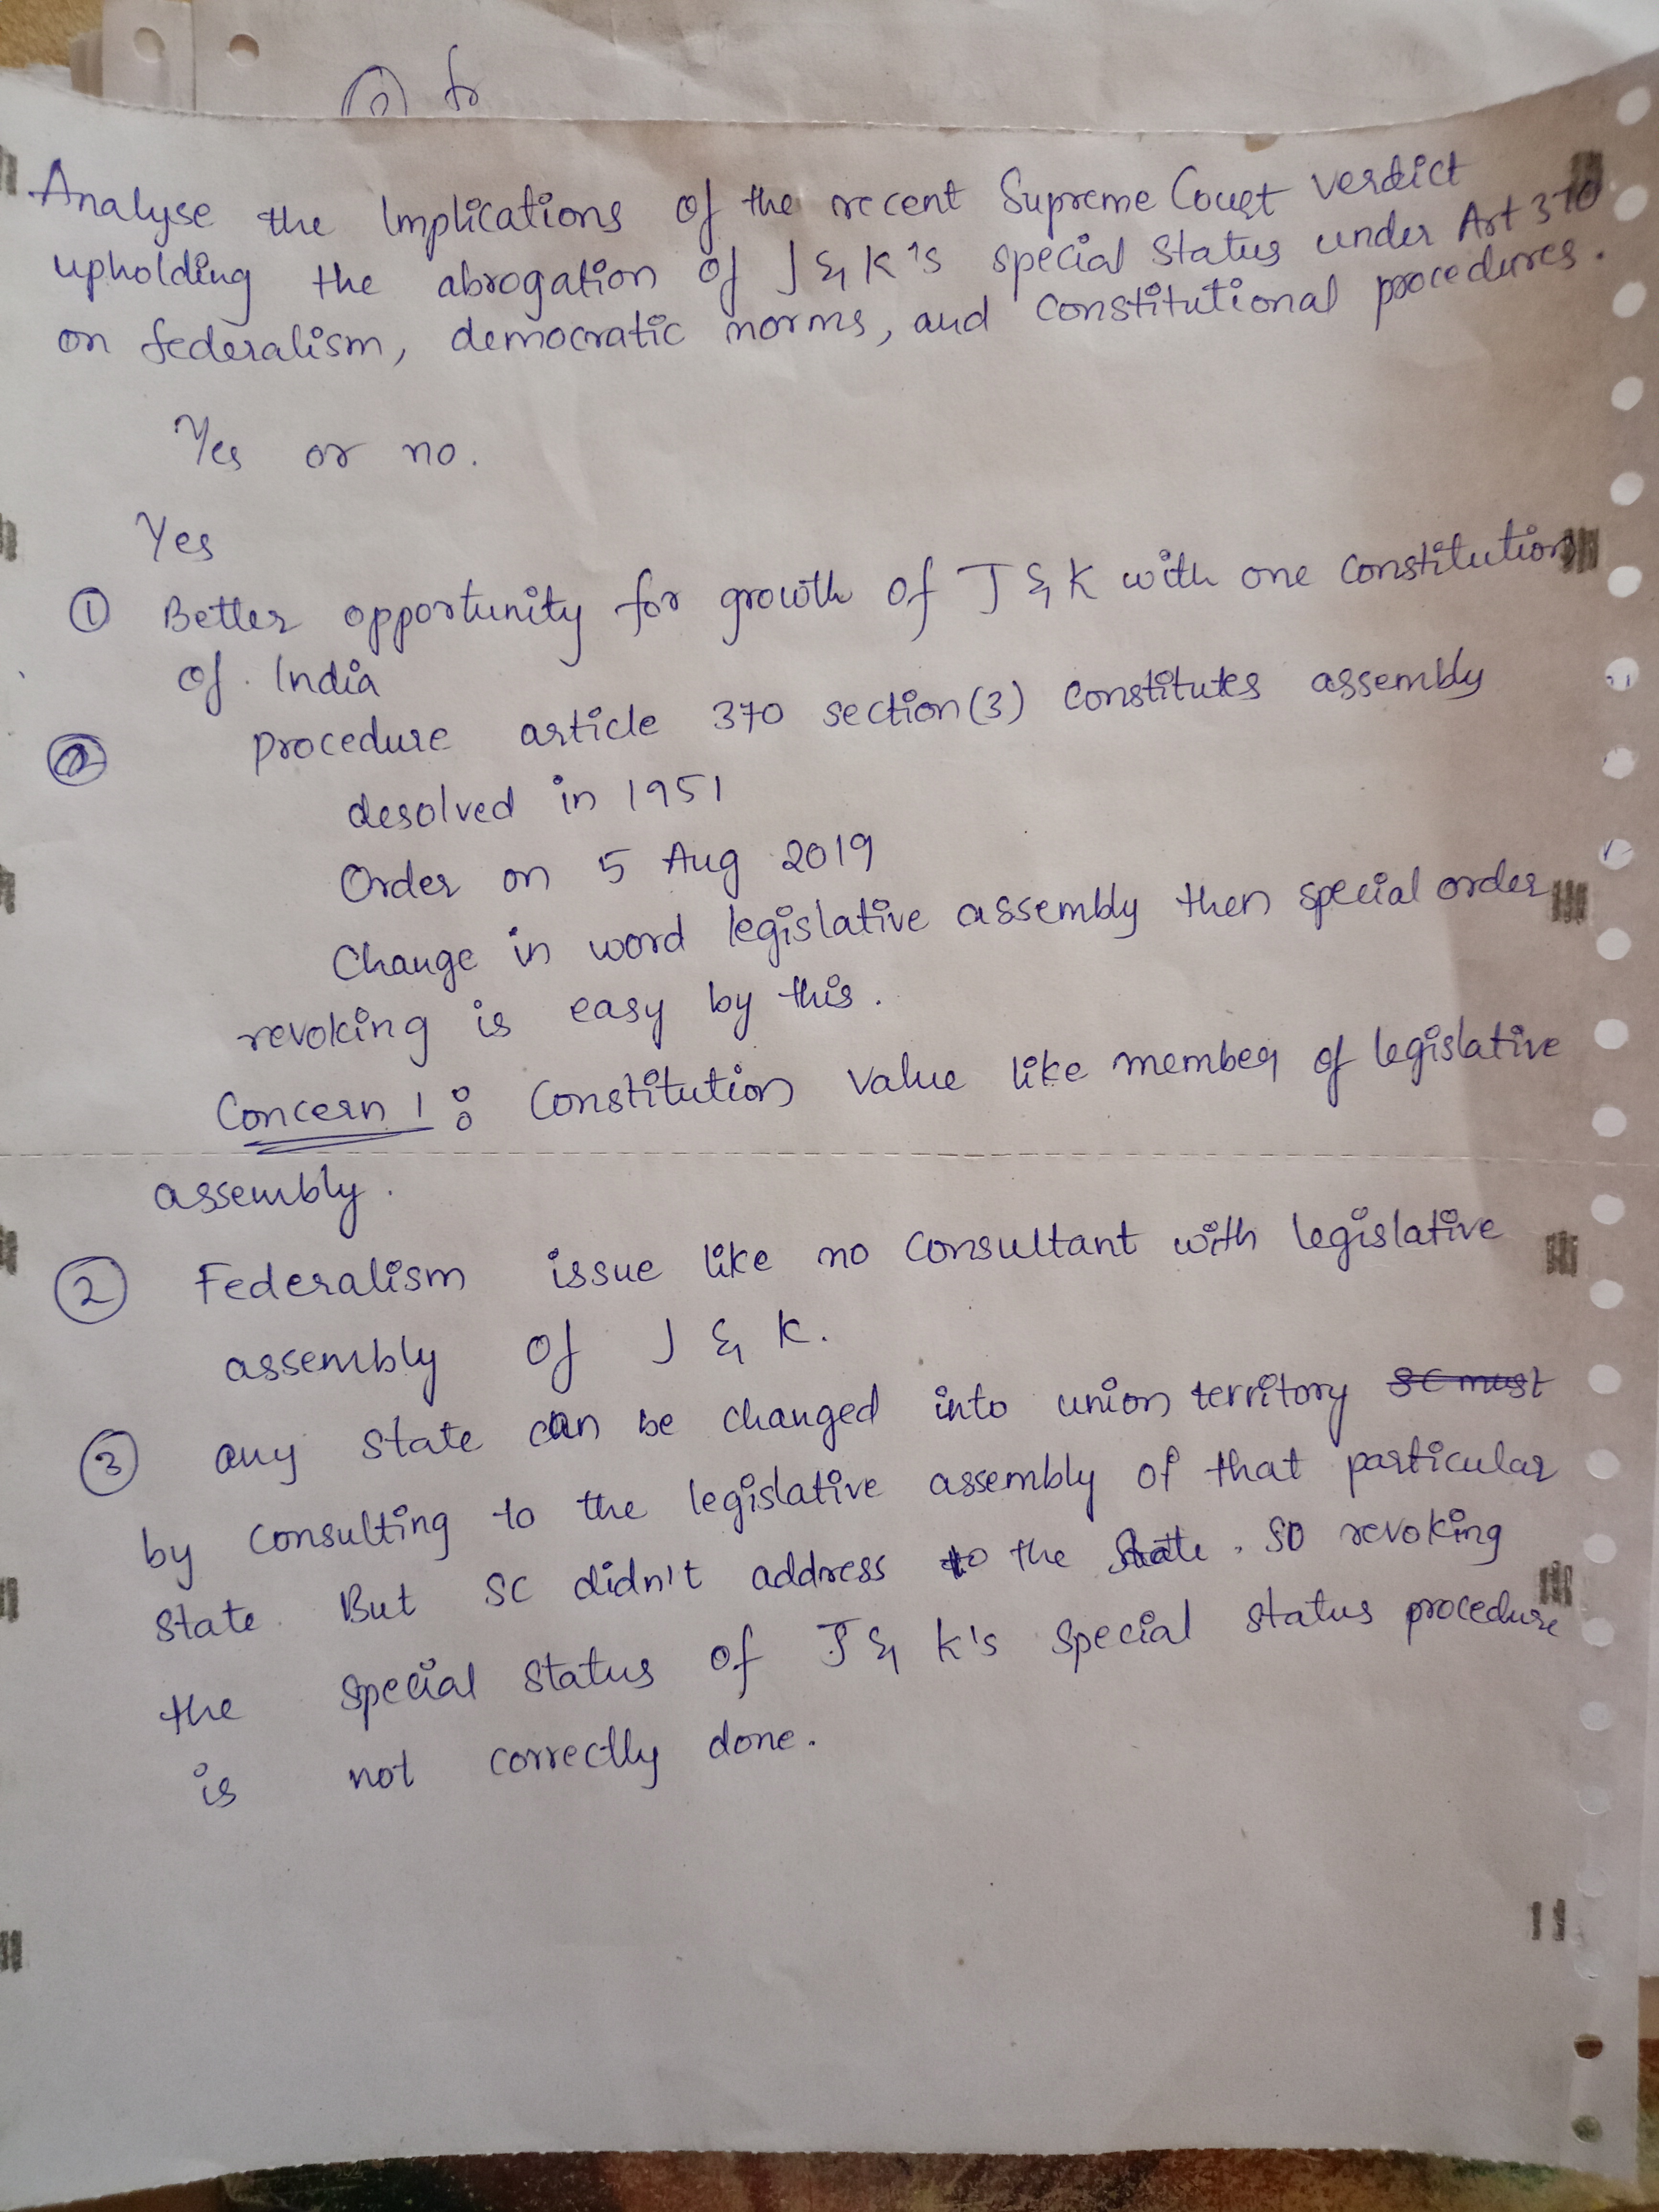 to
Analyse the Implications of the recent Supreme Court verdict
upholding the abrogation of J & K's special status under Art 370
on federalism, democratic norms, and constitutional procedures.
Yes or no.
Yes
① Better opportunity for growth of J & K with one constitution
of India
② procedure article 370 section (3) constitutes assembly
desolved in 1951
Order on 5 Aug 2019
Change in word legislative assembly then special order
revoking is easy by this.
Concern 1 : Constitution value like member of legislative
assembly.
② Federalism issue like no consultant with legislative
assembly of J & K.
③ any state can be changed into union territory SC must
by consulting to the legislative assembly of that particular
state. But SC didn't address to the State. So revoking
the special status of J & K's special status procedure
is not correctly done.